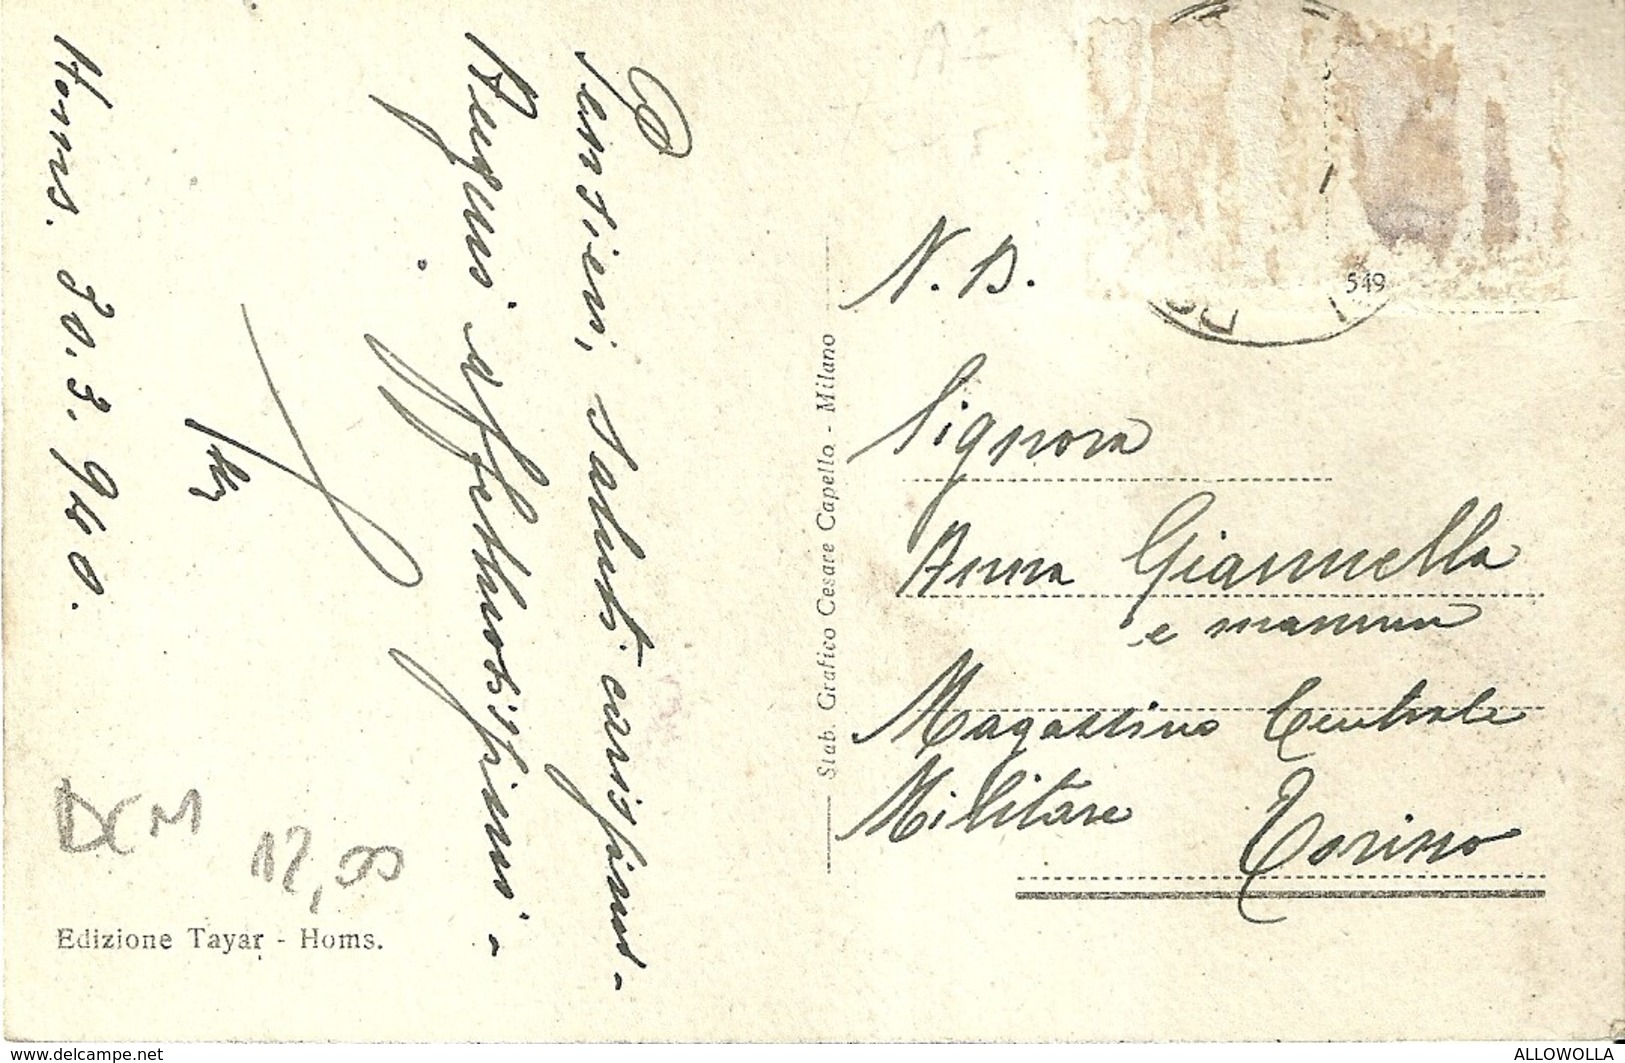 Homs. 30.3.940.
Pensieri, saluti carissimi -
Auguri affettuosissimi -
DCM
12,00
Edizione Tayar - Homs.
Stab. Grafico Cesare Capello - Milano
549
N. D.
Signora
Anna Giannella
e mamma
Magazzino Centrale
Militare Torino
www.delcampe.net
ALLOWOLLA